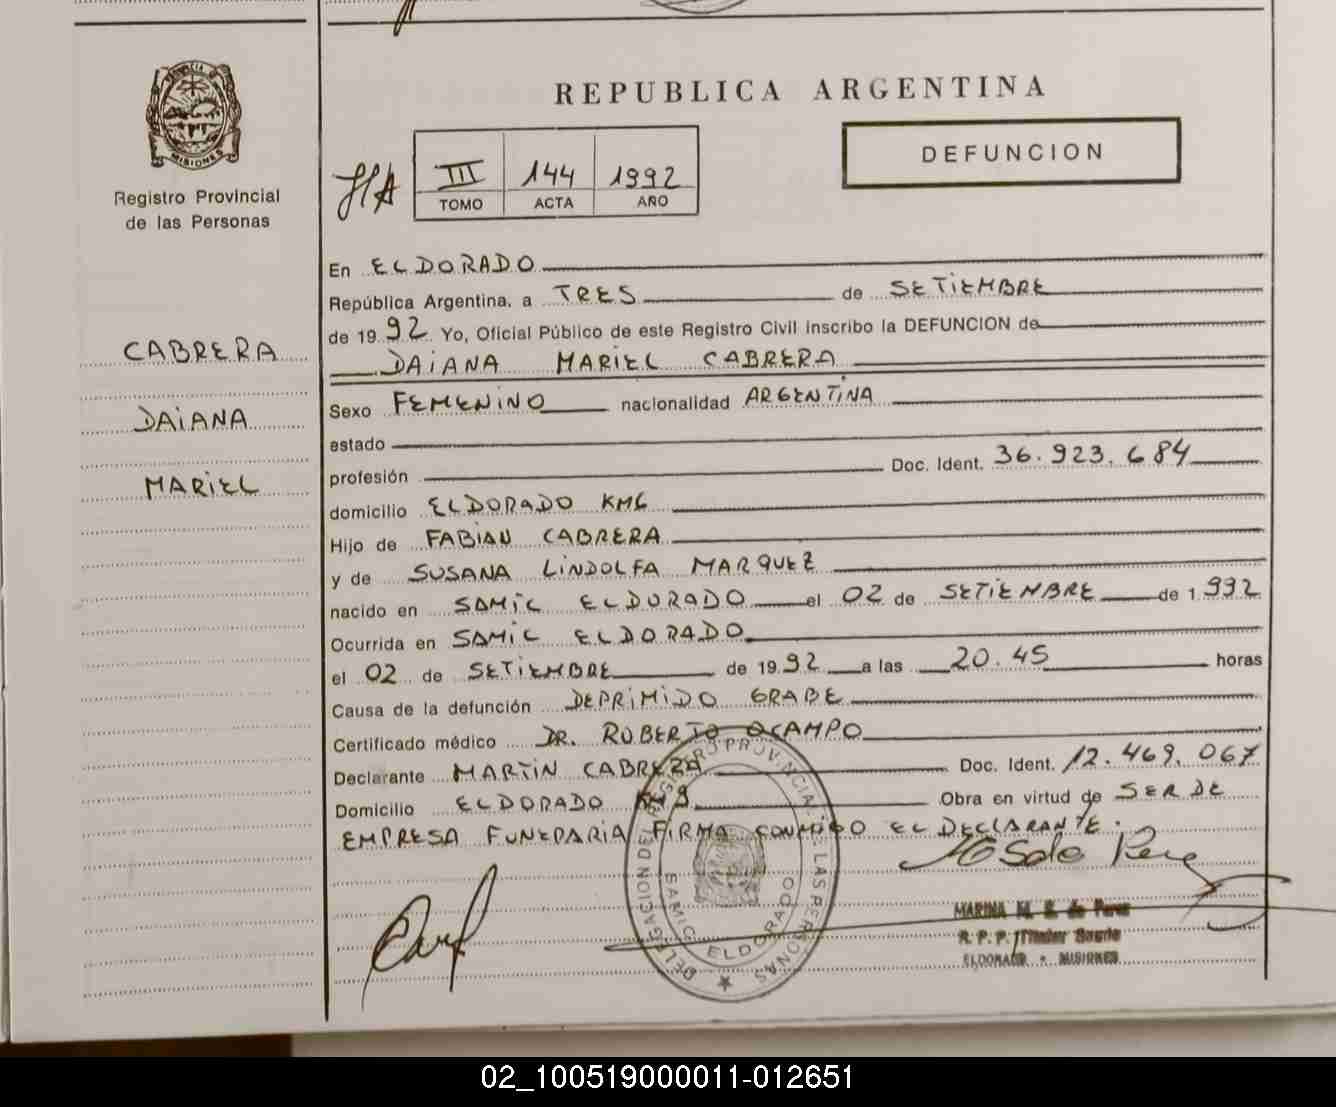 PROVINCIA DE
MISIONES
Registro Provincial
de las Personas
CABRERA
DAIANA
MARIEL
REPUBLICA ARGENTINA
DEFUNCION
III 144 1992
TOMO ACTA AÑO
En ELDORADO
República Argentina, a TRES de SETIEMBRE
de 1992 Yo, Oficial Público de este Registro Civil inscribo la DEFUNCION de
DAIANA MARIEL CABRERA
Sexo FEMENINO nacionalidad ARGENTINA
estado
profesión Doc. Ident. 36.923.684
domicilio ELDORADO KM6
Hijo de FABIAN CABRERA
y de SUSANA LINDOLFA MARQUEZ
nacido en SAMIC ELDORADO el 02 de SETIEMBRE de 1992
Ocurrida en SAMIC ELDORADO
el 02 de SETIEMBRE de 1992 a las 20.45 horas
Causa de la defunción DEPRIMIDO GRABE
Certificado médico DR. ROBERTO OCAMPO
Declarante MARTIN CABRERA Doc. Ident. 12.469.067
Domicilio ELDORADO KM9 Obra en virtud de SER DE
EMPRESA FUNERARIA FIRMA CONMIGO EL DECLARANTE.
DELEGACION DEL REGISTRO PROVINCIAL DE LAS PERSONAS
SAMIC ELDORADO
MARINA M. S. de Perez
R. P. P. Titular Samic
ELDORADO - MISIONES
02_100519000011-012651